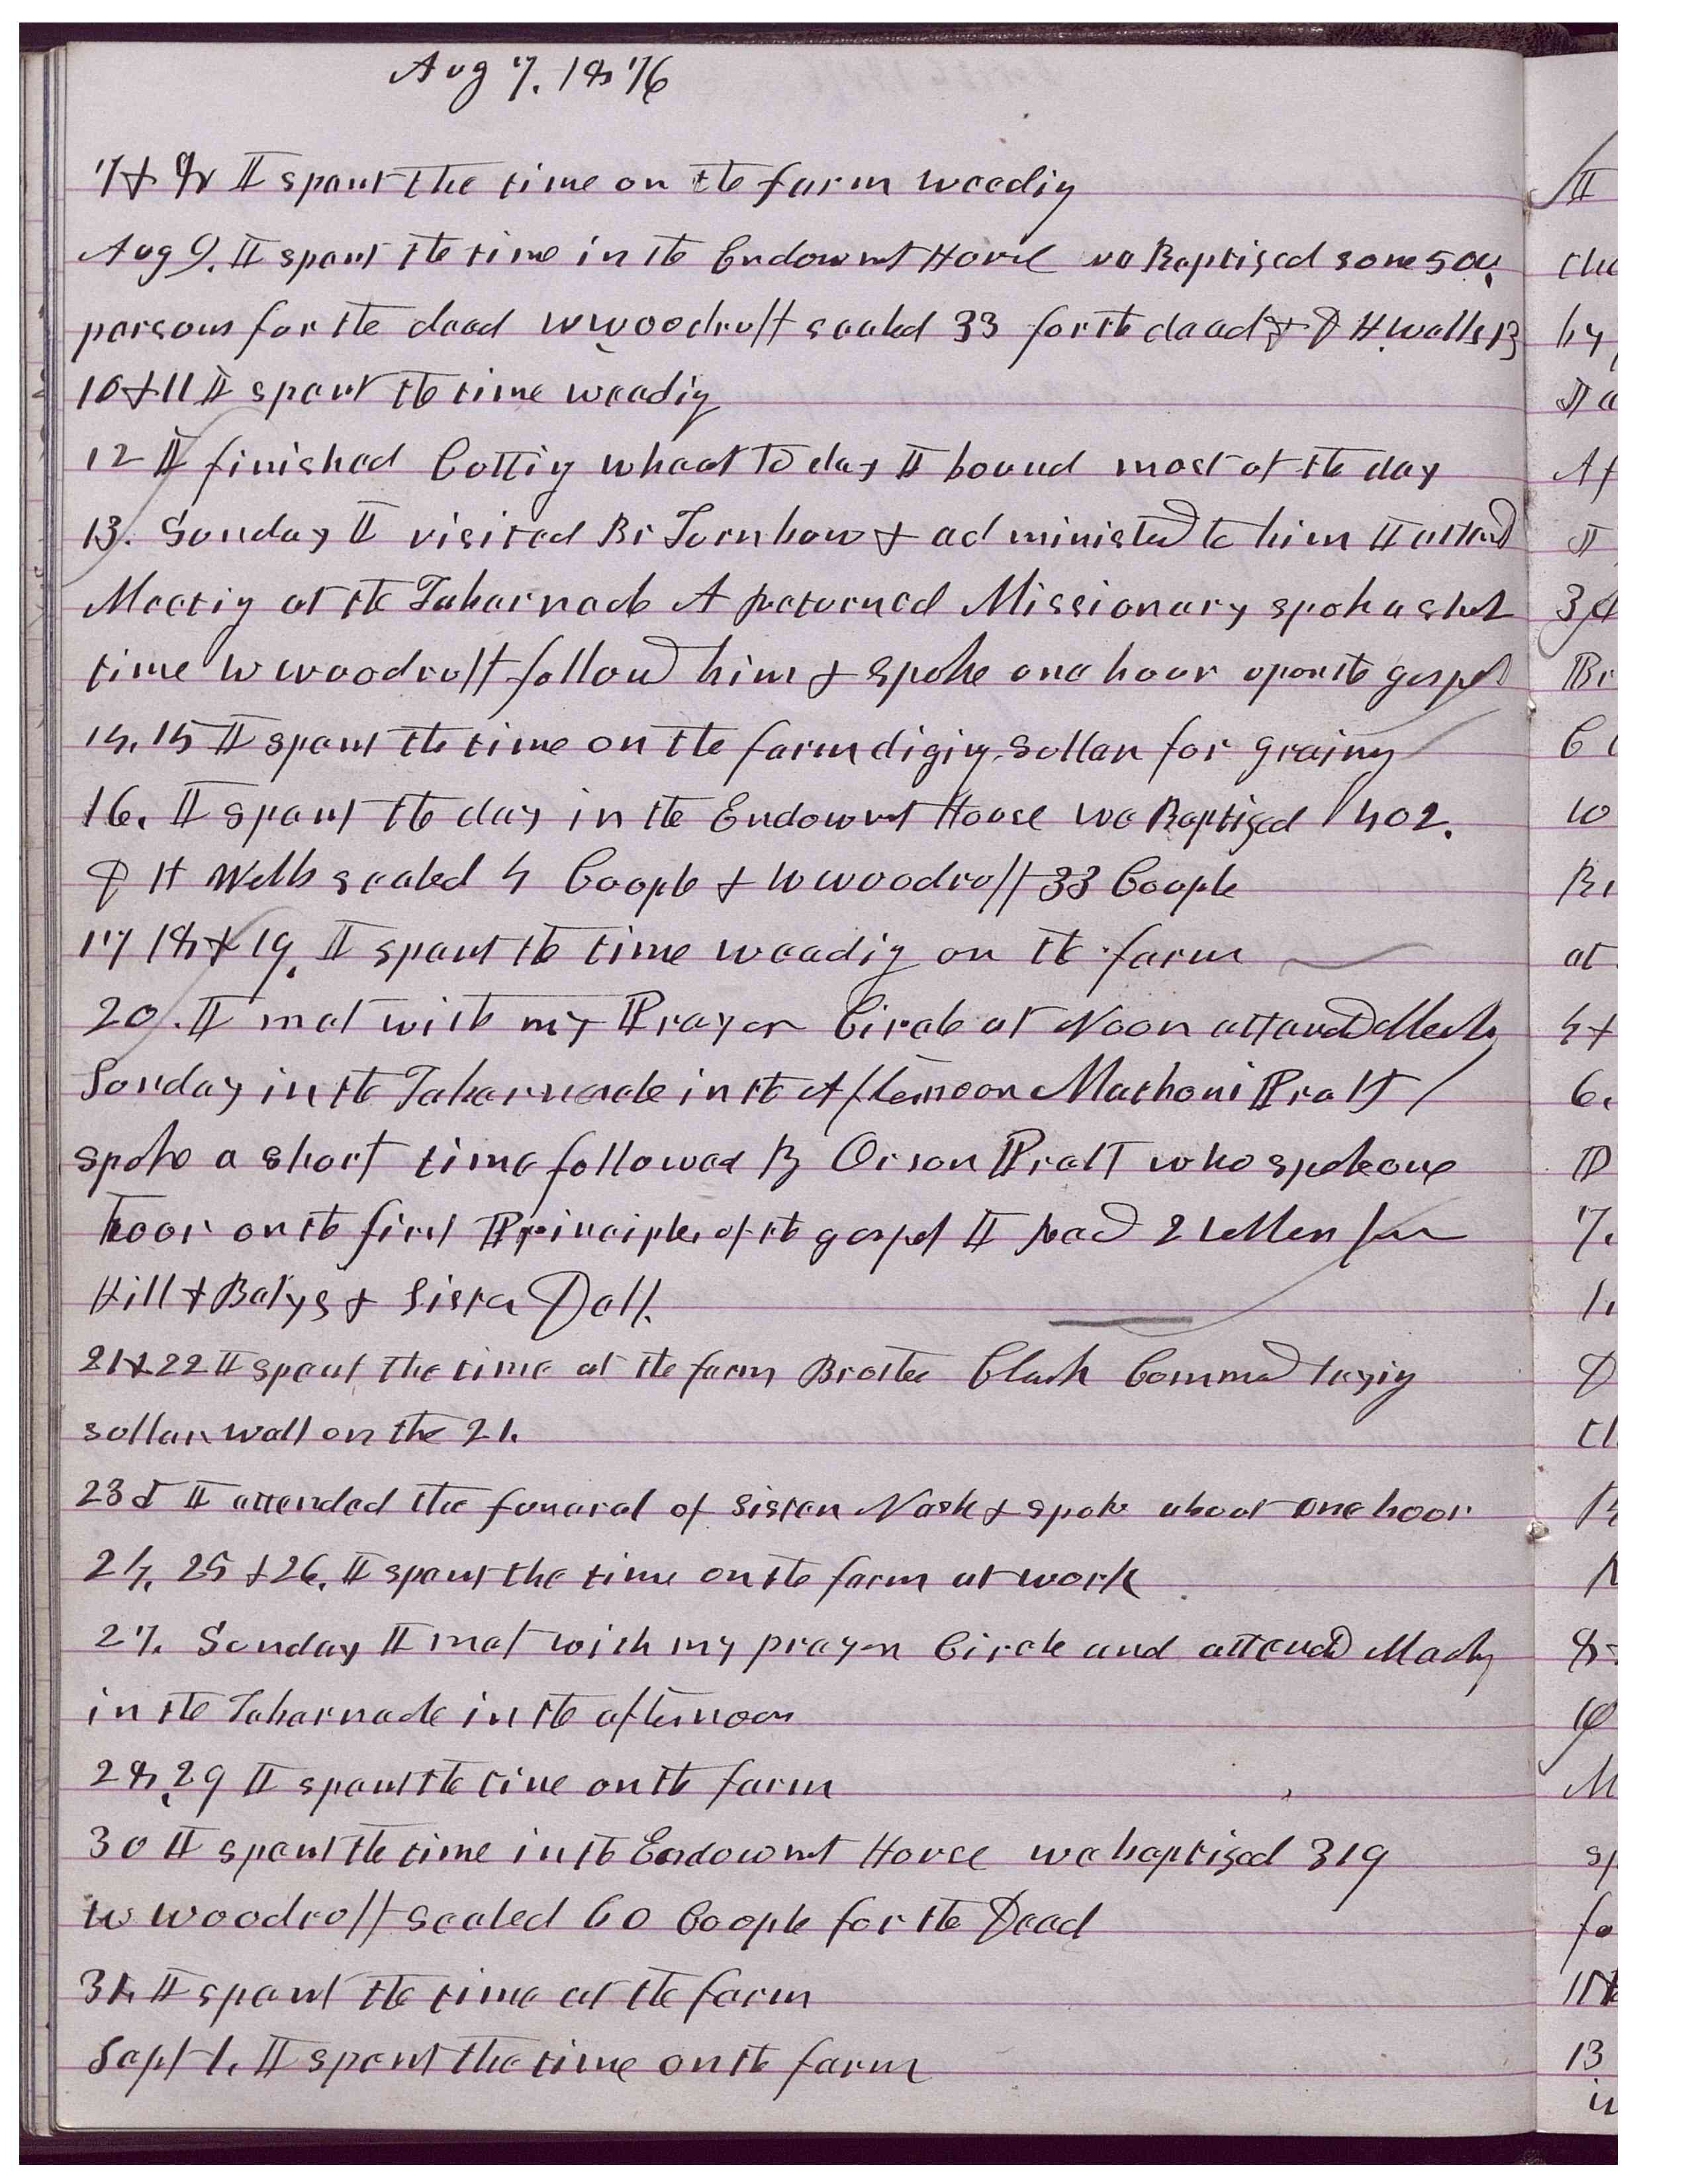 Aug 7, 1876
7 & 8 I spent the time on the farm weeding
Aug 9, I spent the time in the Endowmt House we Baptized some 500
persons for the dead W Woodruff sealed 33 for the dead & D H Wells 13
10 & 11 I spent the time weeding
12 I finished Cutting wheat to day I bound most of the day
13. Sunday I visited Br Turnbow & administed to him I attend
Meeting at the Tabernacle A returned Missionary spoke a short
time W Woodruff followd him & spoke one hour upon the gospel
14, 15 I spent the time on the farm diging sellar for grainry
16, I spent the day in the Endowmt House we Baptized 1402.
D H Wells sealed 4 Couple & W Woodruff 33 Couple
17 18 & 19, I spent the time weeding on the farm
20. I met with my Prayer Circle at Noon attended Meeting
Sunday in the Tabernacle in the Afternoon Mathoni Pratt
spoke a short time followed By Orson Pratt who spoke one
hour on the first Principles of the gospel I read 2 letters from
Hill & Batys & Sister
21 & 22 I spent the time at the farm Brother Clark Commd laying
sellar wall on the 21.
23d I attended the funeral of Sister Nash & spoke about one hour
24, 25 & 26, I spent the time on the farm at work
27. Sunday I met with my prayer Circle and attended Meeting
in the Tabernacle in the afternoon
28, 29 I spent the time on the farm
30 I spent the time in the Endowmt House we baptized 319
W Woodruff sealed 60 Couple for the Dead
31, I spent the time at the farm
Sept 1, I spent the time on the farm